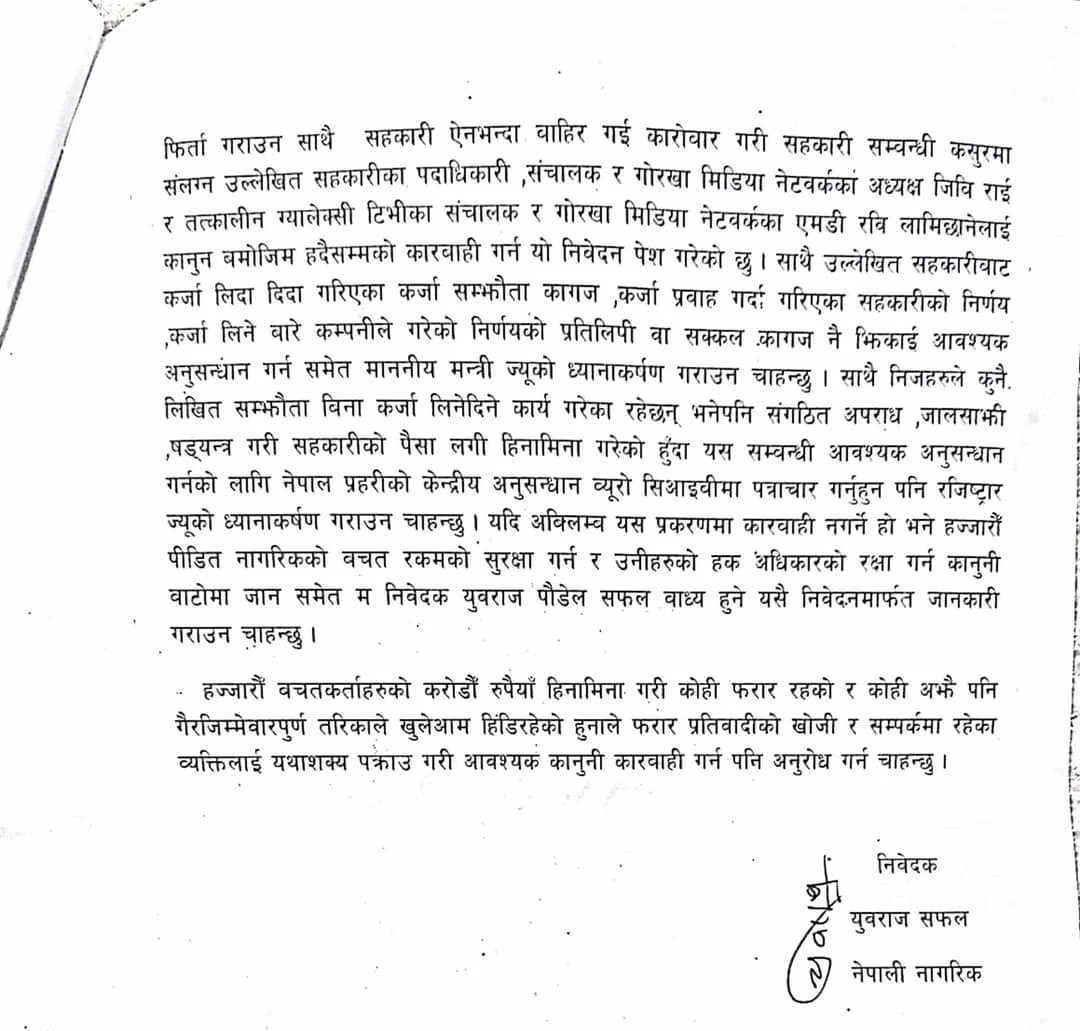 फिर्ता गराउन साथै सहकारी ऐनभन्दा वाहिर गई कारोवार गरी सहकारी सम्वन्धी कसुरमा
संलग्न उल्लेखित सहकारीका पदाधिकारी ,संचालक र गोरखा मिडिया नेटवर्ककां अध्यक्ष जिवि राई
र तत्कालीन ग्यालेक्सी टिभीका संचालक र गोरखा मिडिया नेटवर्कका एमडी रवि लामिछानेलाई
कानुन वमोजिम हदैसम्मको कारवाही गर्न यो निवेदन पेश गरेको छु । साथै उल्लेखित सहकारीवाट
कर्जा लिदा दिदा गरिएका कर्जा सम्झौता कागज ,कर्जा प्रवाह गर्दा गरिएका सहकारीको निर्णय
,कर्जा लिने वारे कम्पनीले गरेको निर्णयको प्रतिलिपी वा सक्कल कागज नै झिकाई आवश्यक
अनुसन्धान गर्न समेत माननीय मन्त्री ज्यूको ध्यानाकर्षण गराउन चाहन्छु । साथै निजहरुले कुनै
लिखित सम्झौता विना कर्जा लिनेदिने कार्य गरेका रहेछन् भनेपनि संगठित अपराध ,जालसाझी
,षड्यन्त्र गरी सहकारीको पैसा लगी हिनामिना गरेको हुँदा यस सम्वन्धी आवश्यक अनुसन्धान
गर्नको लागि नेपाल प्रहरीको केन्द्रीय अनुसन्धान व्यूरो सिआइवीमा पत्राचार गर्नुहुन पनि रजिष्ट्रार
ज्यूको ध्यानाकर्षण गराउन चाहन्छु । यदि अविलम्व यस प्रकरणमा कारवाही नगर्ने हो भने हज्जारौँ
पीडित नागरिकको वचत रकमको सुरक्षा गर्न र उनीहरुको हक अधिकारको रक्षा गर्न कानुनी
वाटोमा जान समेत म निवेदक युवराज पौडेल सफल वाध्य हुने यसै निवेदनमार्फत जानकारी
गराउन चाहन्छु ।
हज्जारौँ वचतकर्ताहरुको करोडौँ रुपैयाँ हिनामिना गरी कोही फरार रहको र कोही अझै पनि
गैरजिम्मेवारपुर्ण तरिकाले खुलेआम हिंडिरहेको हुनाले फरार प्रतिवादीको खोजी र सम्पर्कमा रहेका
व्यक्तिलाई यथाशक्य पक्राउ गरी आवश्यक कानुनी कारवाही गर्न पनि अनुरोध गर्न चाहन्छु ।
निवेदक
युवराज सफल
नेपाली नागरिक